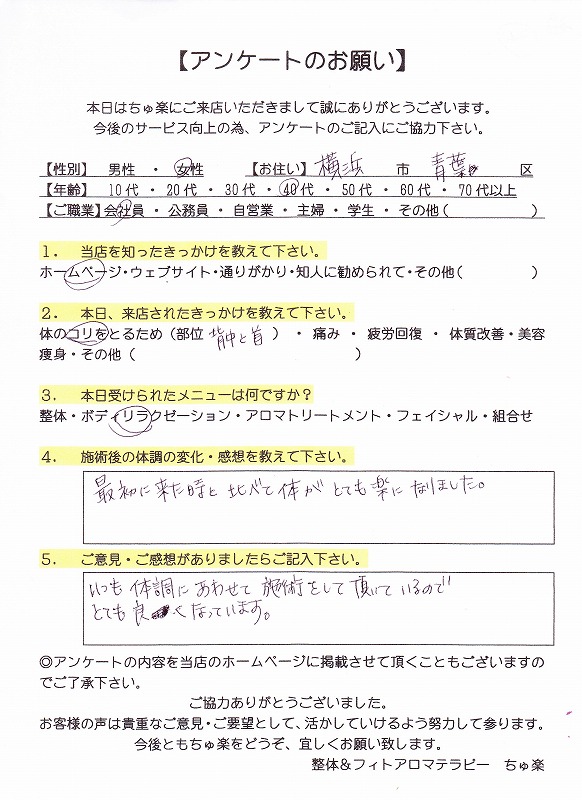 【アンケートのお願い】
本日はちゅ楽にご来店いただきまして誠にありがとうございます。
今後のサービス向上の為、アンケートのご記入にご協力下さい。
【性別】 男性 ・ 女性 【お住い】 横浜 市 青葉 区
【年齢】 10代 ・ 20代 ・ 30代 ・ 40代 ・ 50代 ・ 60代 ・ 70代以上
【ご職業】会社員 ・ 公務員 ・ 自営業 ・ 主婦 ・ 学生 ・ その他( )
1. 当店を知ったきっかけを教えて下さい。
ホームページ・ウェブサイト・通りがかり・知人に勧められて・その他( )
2. 本日、来店されたきっかけを教えて下さい。
体のコリをとるため(部位 背中と首 ) ・ 痛み ・ 疲労回復 ・ 体質改善・美容
痩身・その他( )
3. 本日受けられたメニューは何ですか?
整体・ボディリラクゼーション・アロマトリートメント・フェイシャル・組合せ
4. 施術後の体調の変化・感想を教えて下さい。
最初に来た時と比べて体がとても楽になりました。
5. ご意見・ご感想がありましたらご記入下さい。
いつも体調にあわせて施術をして頂いているので
とても良くなっています。
◎アンケートの内容を当店のホームページに掲載させて頂くこともございますの
でご了承下さい。
ご協力ありがとうございました。
お客様の声は貴重なご意見・ご要望として、活かしていけるよう努力して参ります。
今後ともちゅ楽をどうぞ、宜しくお願い致します。
整体&フィトアロマテラピー ちゅ楽